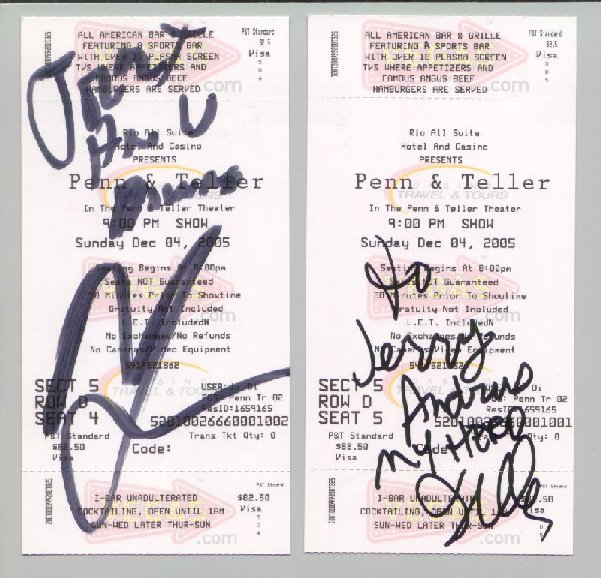 ALL AMERICAN BAR & GRILLE
FEATURING A SPORTS BAR
WITH OVER 10 PLASMA SCREEN
TVS WHERE APPETIZERS AND
FAMOUS ANGUS BEEF
HAMBURGERS ARE SERVED
P&T Standard
Visa
.com
Rio All Suite
Hotel And Casino
PRESENTS
Penn & Teller
TRAVEL & TOURS
In The Penn & Teller Theater
9:00 PM SHOW
Sunday Dec 04, 2005
Seating Begins At 8:00pm
Seats NOT Guaranteed
30 Minutes Prior To Showtime
Gratuity Not Included
L.E.T. IncludedN
No Exchanges/No Refunds
No Cameras/Video Equipment
591/521862
SECT 5
ROW D
SEAT 4
Penn Tr 02
ResID:1659165
5201002666000 1002
P&T Standard
$82.50
Visa
Trans Tkt Qty: 0
Code:
I-BAR UNADULTERATED
COCKTAILING, OPEN UNTIL 1AM
SUN-WED LATER THUR-SUN
$82.50
Visa
.com
ALL AMERICAN BAR & GRILLE
FEATURING A SPORTS BAR
WITH OVER 10 PLASMA SCREEN
TVS WHERE APPETIZERS AND
FAMOUS ANGUS BEEF
HAMBURGERS ARE SERVED
P&T Standard
Visa
.com
Rio All Suite
Hotel And Casino
PRESENTS
Penn & Teller
TRAVEL & TOURS
In The Penn & Teller Theater
9:00 PM SHOW
Sunday Dec 04, 2005
Begins At 8:00pm
Guaranteed
30 Minutes Prior To Showtime
Gratuity Not Included
L.E.T. IncludedN
No Exchanges/No Refunds
Video Equipment
SECT 5
ROW D
SEAT 5
Penn Tr 02
ResID:1659165
P&T Standard
$82.50
Visa
Trans Tkt Qty: 0
Code:
To
Jerry
Andrus
My Hero
Teller
I-BAR
COCKTAILING, OPEN UNTIL
SUN-WED LATER THUR-SUN
$82.50
Visa
.com